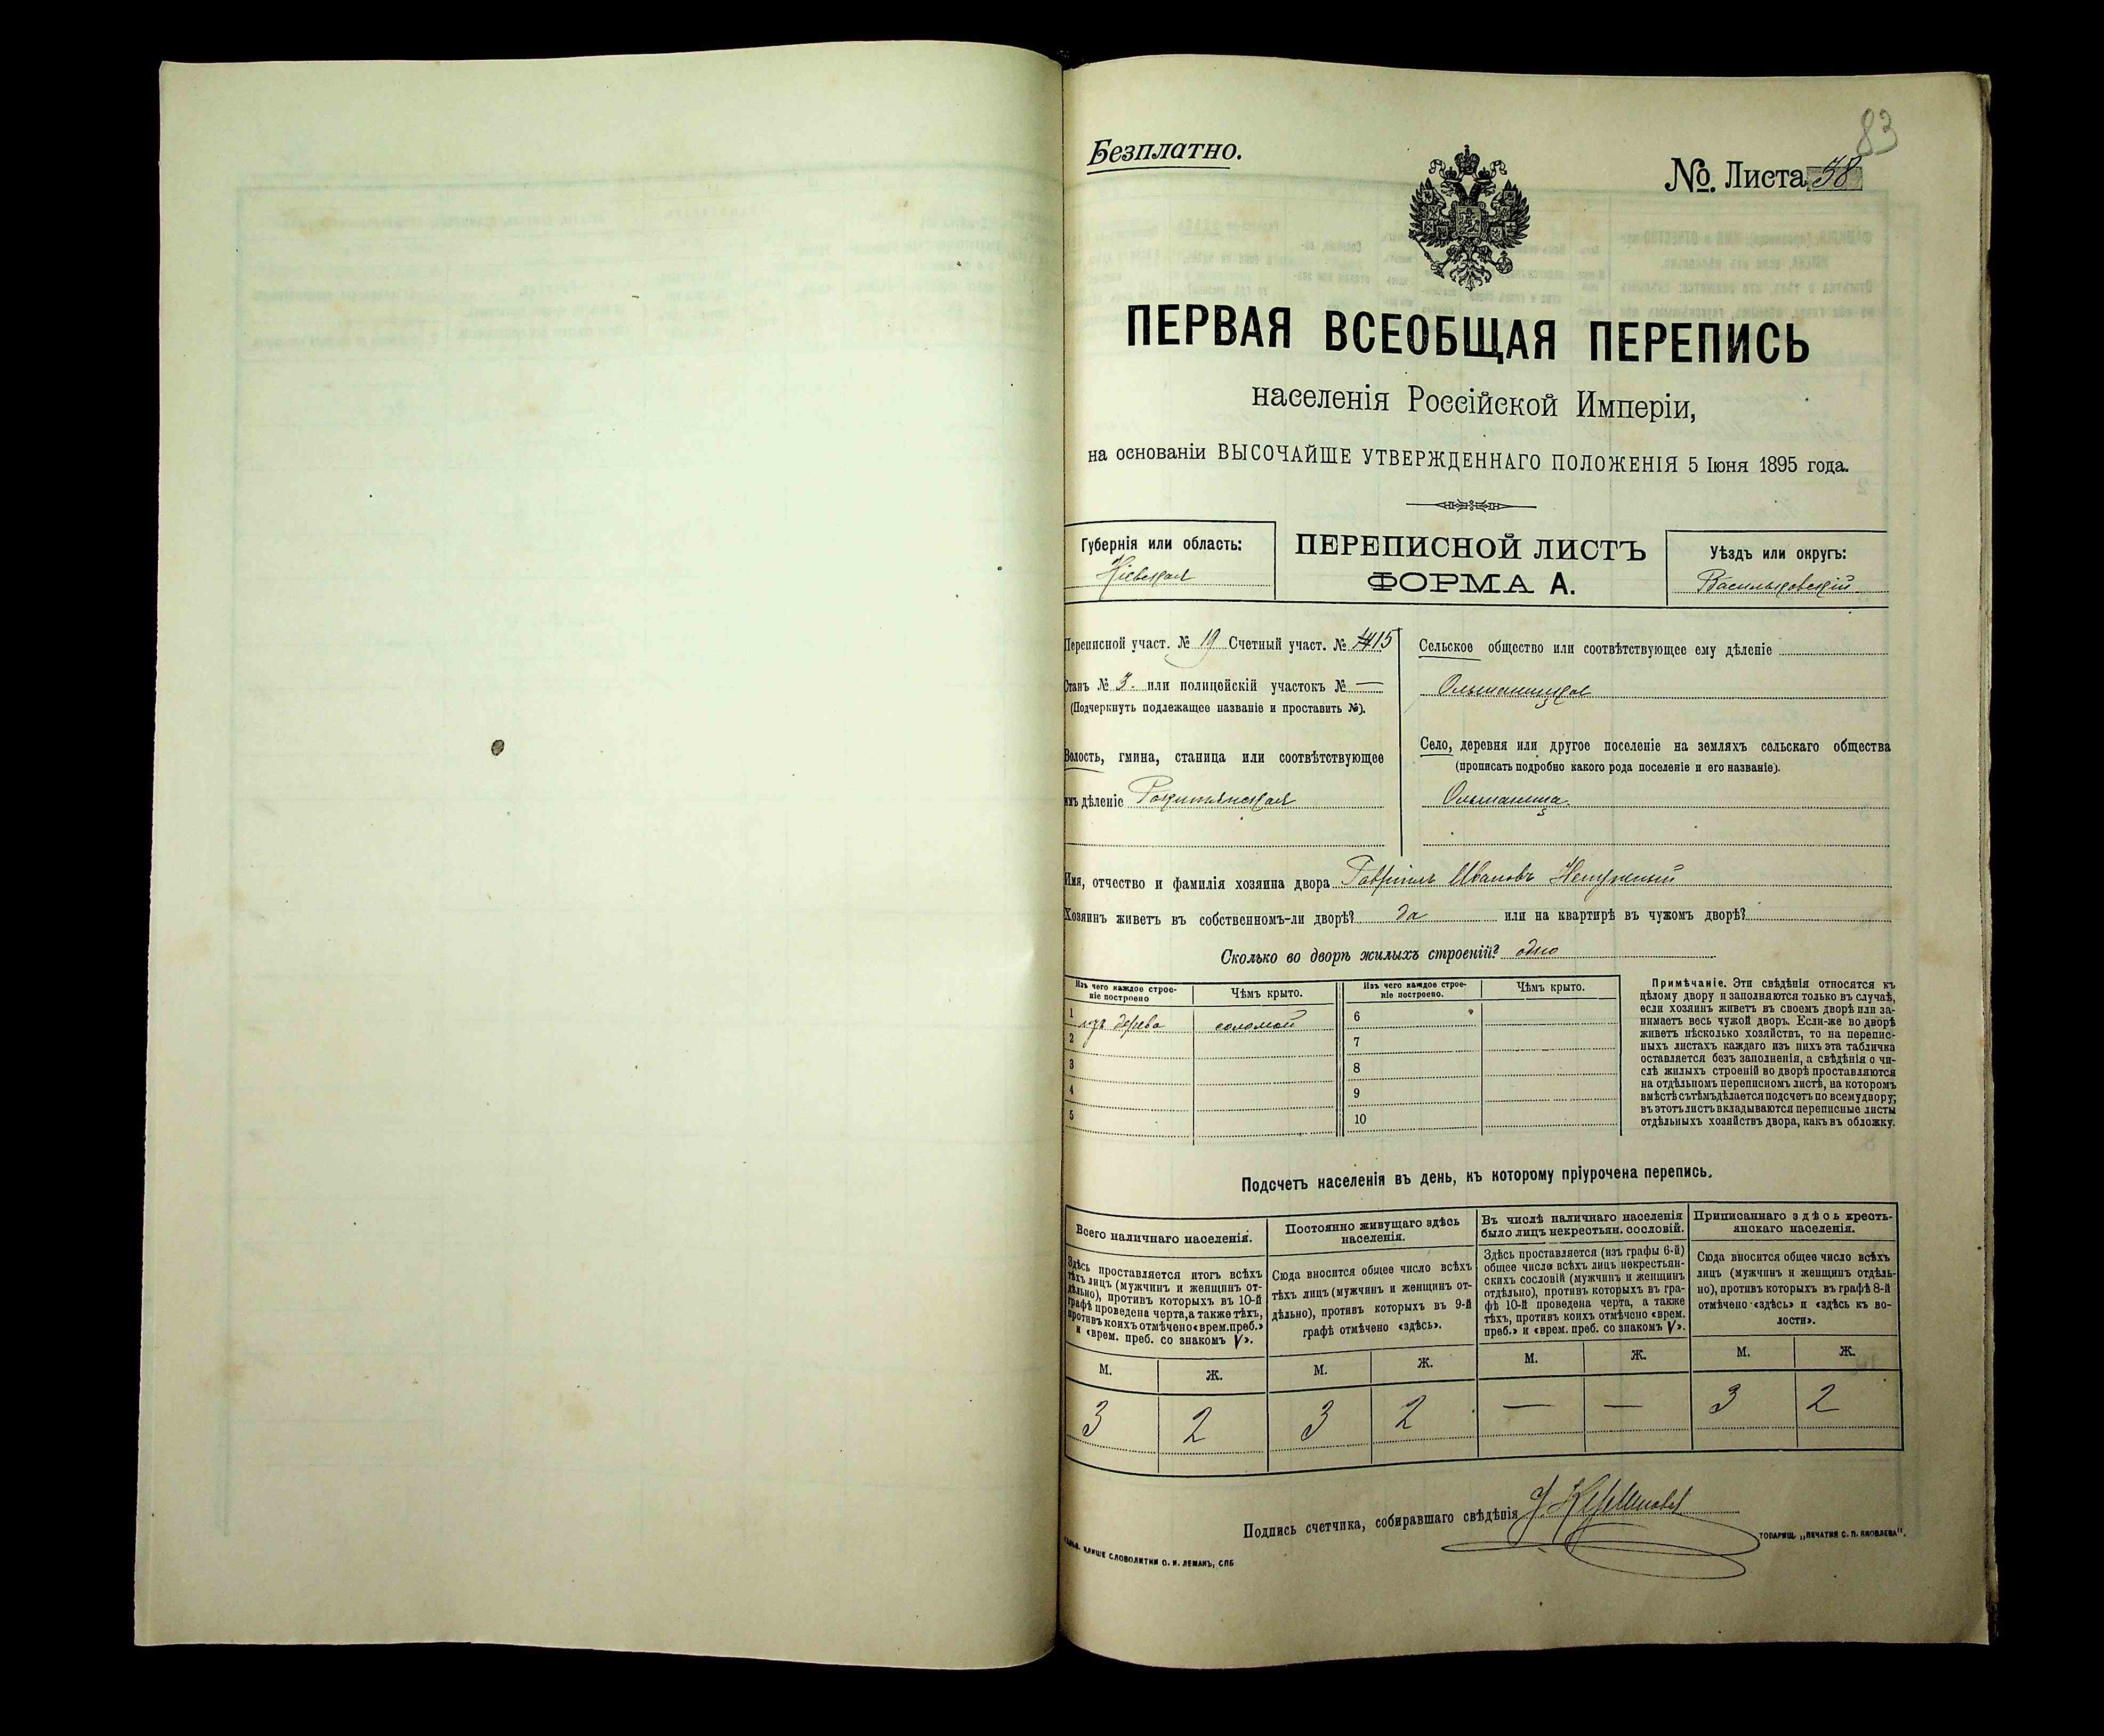 83
Безплатно.
№. Листа 38
ПЕРВАЯ ВСЕОБЩАЯ ПЕРЕПИСЬ
населенія Россійской Имперіи,
на основаніи ВЫСОЧАЙШЕ УТВЕРЖДЕННАГО ПОЛОЖЕНІЯ 5 Іюня 1895 года.
Губернія или область:
Кіевская
ПЕРЕПИСНОЙ ЛИСТЪ
ФОРМА А.
Уѣздъ или округъ:
Васильковскій
Переписной участ. № 19 Счетный участ. № 15
Станъ № 3. или полицейскій участокъ № —
(Подчеркнуть подлежащее названіе и проставить №).
Волость, гмина, станица или соотвѣтствующее
имъ дѣленіе Рокитянская
Сельское общество или соотвѣтствующее ему дѣленіе
Ольшаницкое
Село, деревня или другое поселеніе на земляхъ сельскаго общества
(прописать подробно какого рода поселеніе и его названіе).
Ольшаница
Имя, отчество и фамилія хозяина двора Гавріилъ Ивановъ
Хозяинъ живетъ въ собственномъ-ли дворѣ? да или на квартирѣ въ чужомъ дворѣ?
Сколько во дворѣ жилыхъ строеній? одно
Изъ чего каждое строе-
ніе построено
Чѣмъ крыто.
Изъ чего каждое строе-
ніе построено.
Чѣмъ крыто.
1 изъ дерева соломой
2
3
4
5
6
7
8
9
10
Примѣчаніе. Эти свѣдѣнія относятся къ
цѣлому двору и заполняются только въ случаѣ,
если хозяинъ живетъ въ своемъ дворѣ или за-
нимаетъ весь чужой дворъ. Если-же во дворѣ
живетъ нѣсколько хозяйствъ, то на перепис-
ныхъ листахъ каждаго изъ нихъ эта табличка
оставляется безъ заполненія, а свѣдѣнія о чи-
слѣ жилыхъ строеній во дворѣ проставляются
на отдѣльномъ переписномъ листѣ, на которомъ
вмѣстѣ съ тѣмъ дѣлается подсчетъ по всему двору;
въ этотъ листъ вкладываются переписные листы
отдѣльныхъ хозяйствъ двора, какъ въ обложку.
Подсчетъ населенія въ день, къ которому пріурочена перепись.
Всего наличнаго населенія.
Здѣсь проставляется итогъ всѣхъ
тѣхъ лицъ (мужчинъ и женщинъ от-
дѣльно), противъ которыхъ въ 10-й
графѣ проведена черта, а также тѣхъ,
противъ коихъ отмѣчено «врем. преб.»
и «врем. преб. со знакомъ V».
М. Ж.
3 2
Постоянно живущаго здѣсь
населенія.
Сюда вносится общее число всѣхъ
тѣхъ лицъ (мужчинъ и женщинъ от-
дѣльно), противъ которыхъ въ 9-й
графѣ отмѣчено «здѣсь».
М. Ж.
3 2
Въ числѣ наличнаго населенія
было лицъ некрестьян. сословій.
Здѣсь проставляется (изъ графы 6-й)
общее число всѣхъ лицъ некрестьян-
скихъ сословій (мужчинъ и женщинъ
отдѣльно), противъ которыхъ въ гра-
фѣ 10-й проведена черта, а также
тѣхъ, противъ коихъ отмѣчено «врем.
преб.» и «врем. преб. со знакомъ V».
М. Ж.
— —
Приписаннаго здѣсь кресть-
янскаго населенія.
Сюда вносится общее число всѣхъ
лицъ (мужчинъ и женщинъ отдѣль-
но), противъ которыхъ въ графѣ 8-й
отмѣчено «здѣсь» и «здѣсь къ во-
лости».
М. Ж.
3 2
Подпись счетчика, собиравшаго свѣдѣнія
КЛИШЕ СЛОВОЛИТНИ О. И. ЛЕМАНЪ, СПБ
ТОВАРИЩ. „ПЕЧАТНЯ С. П. ЯКОВЛЕВА".